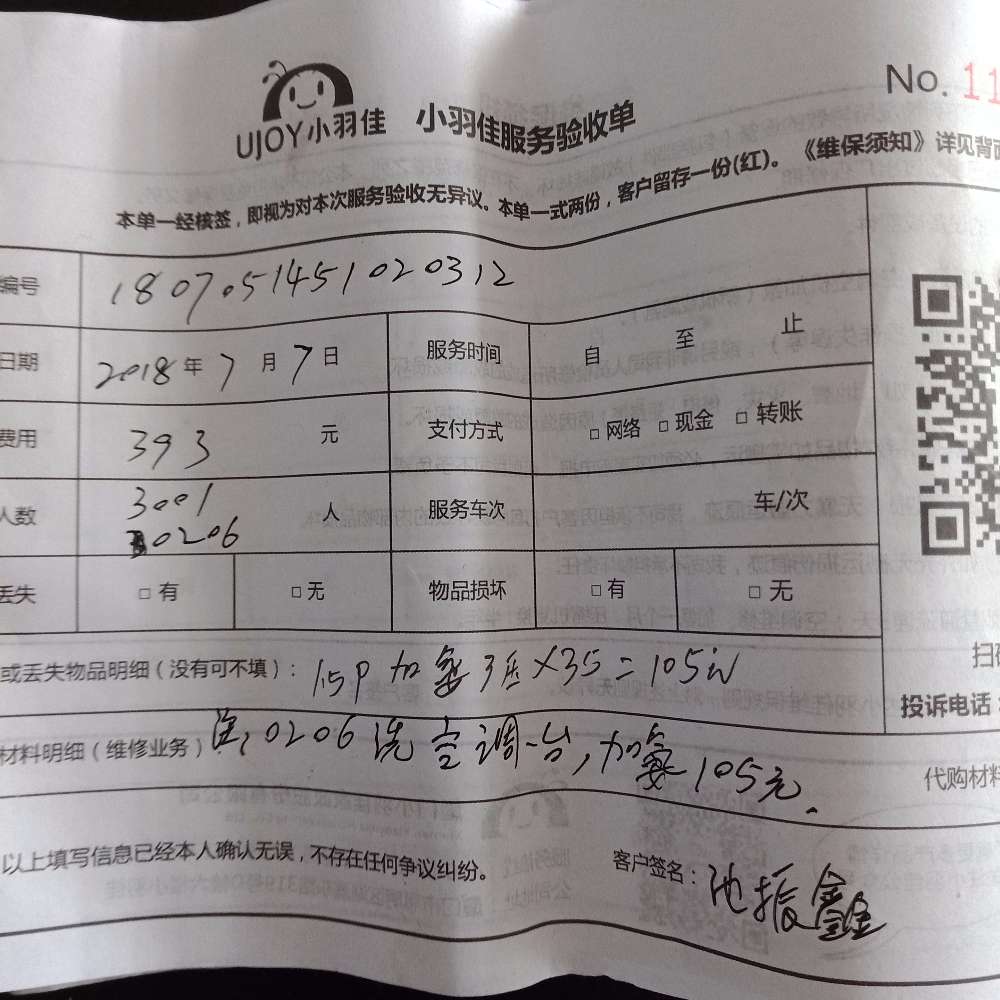 No. 11
UJOY小羽佳 小羽佳服务验收单
本单一经核签，即视为对本次服务验收无异议。本单一式两份，客户留存一份(红)。《维保须知》详见背面
编号 1807051451020312
日期 2018年7月7日 服务时间 自 至 止
费用 393 元 支付方式 □网络 □现金 □转账
人数 3001 人 服务车次 车/次
0206
丢失 □有 □无 物品损坏 □有 □无
扫码
或丢失物品明细（没有可不填）：1.5P加氨3压×35=105元
投诉电话：
材料明细（维修业务）注，0206洗空调一台，加氨105元.
代购材料
以上填写信息已经本人确认无误，不存在任何争议纠纷。 客户签名：池振鑫